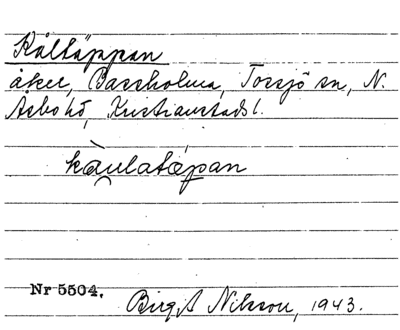 Kåltäppan
åker, Bassholma, Torsjö sn, N.
Åsbo hd, Kristianstads l.
kàulatæpan
Nr 5504.
Birgit Nilsson, 1943.